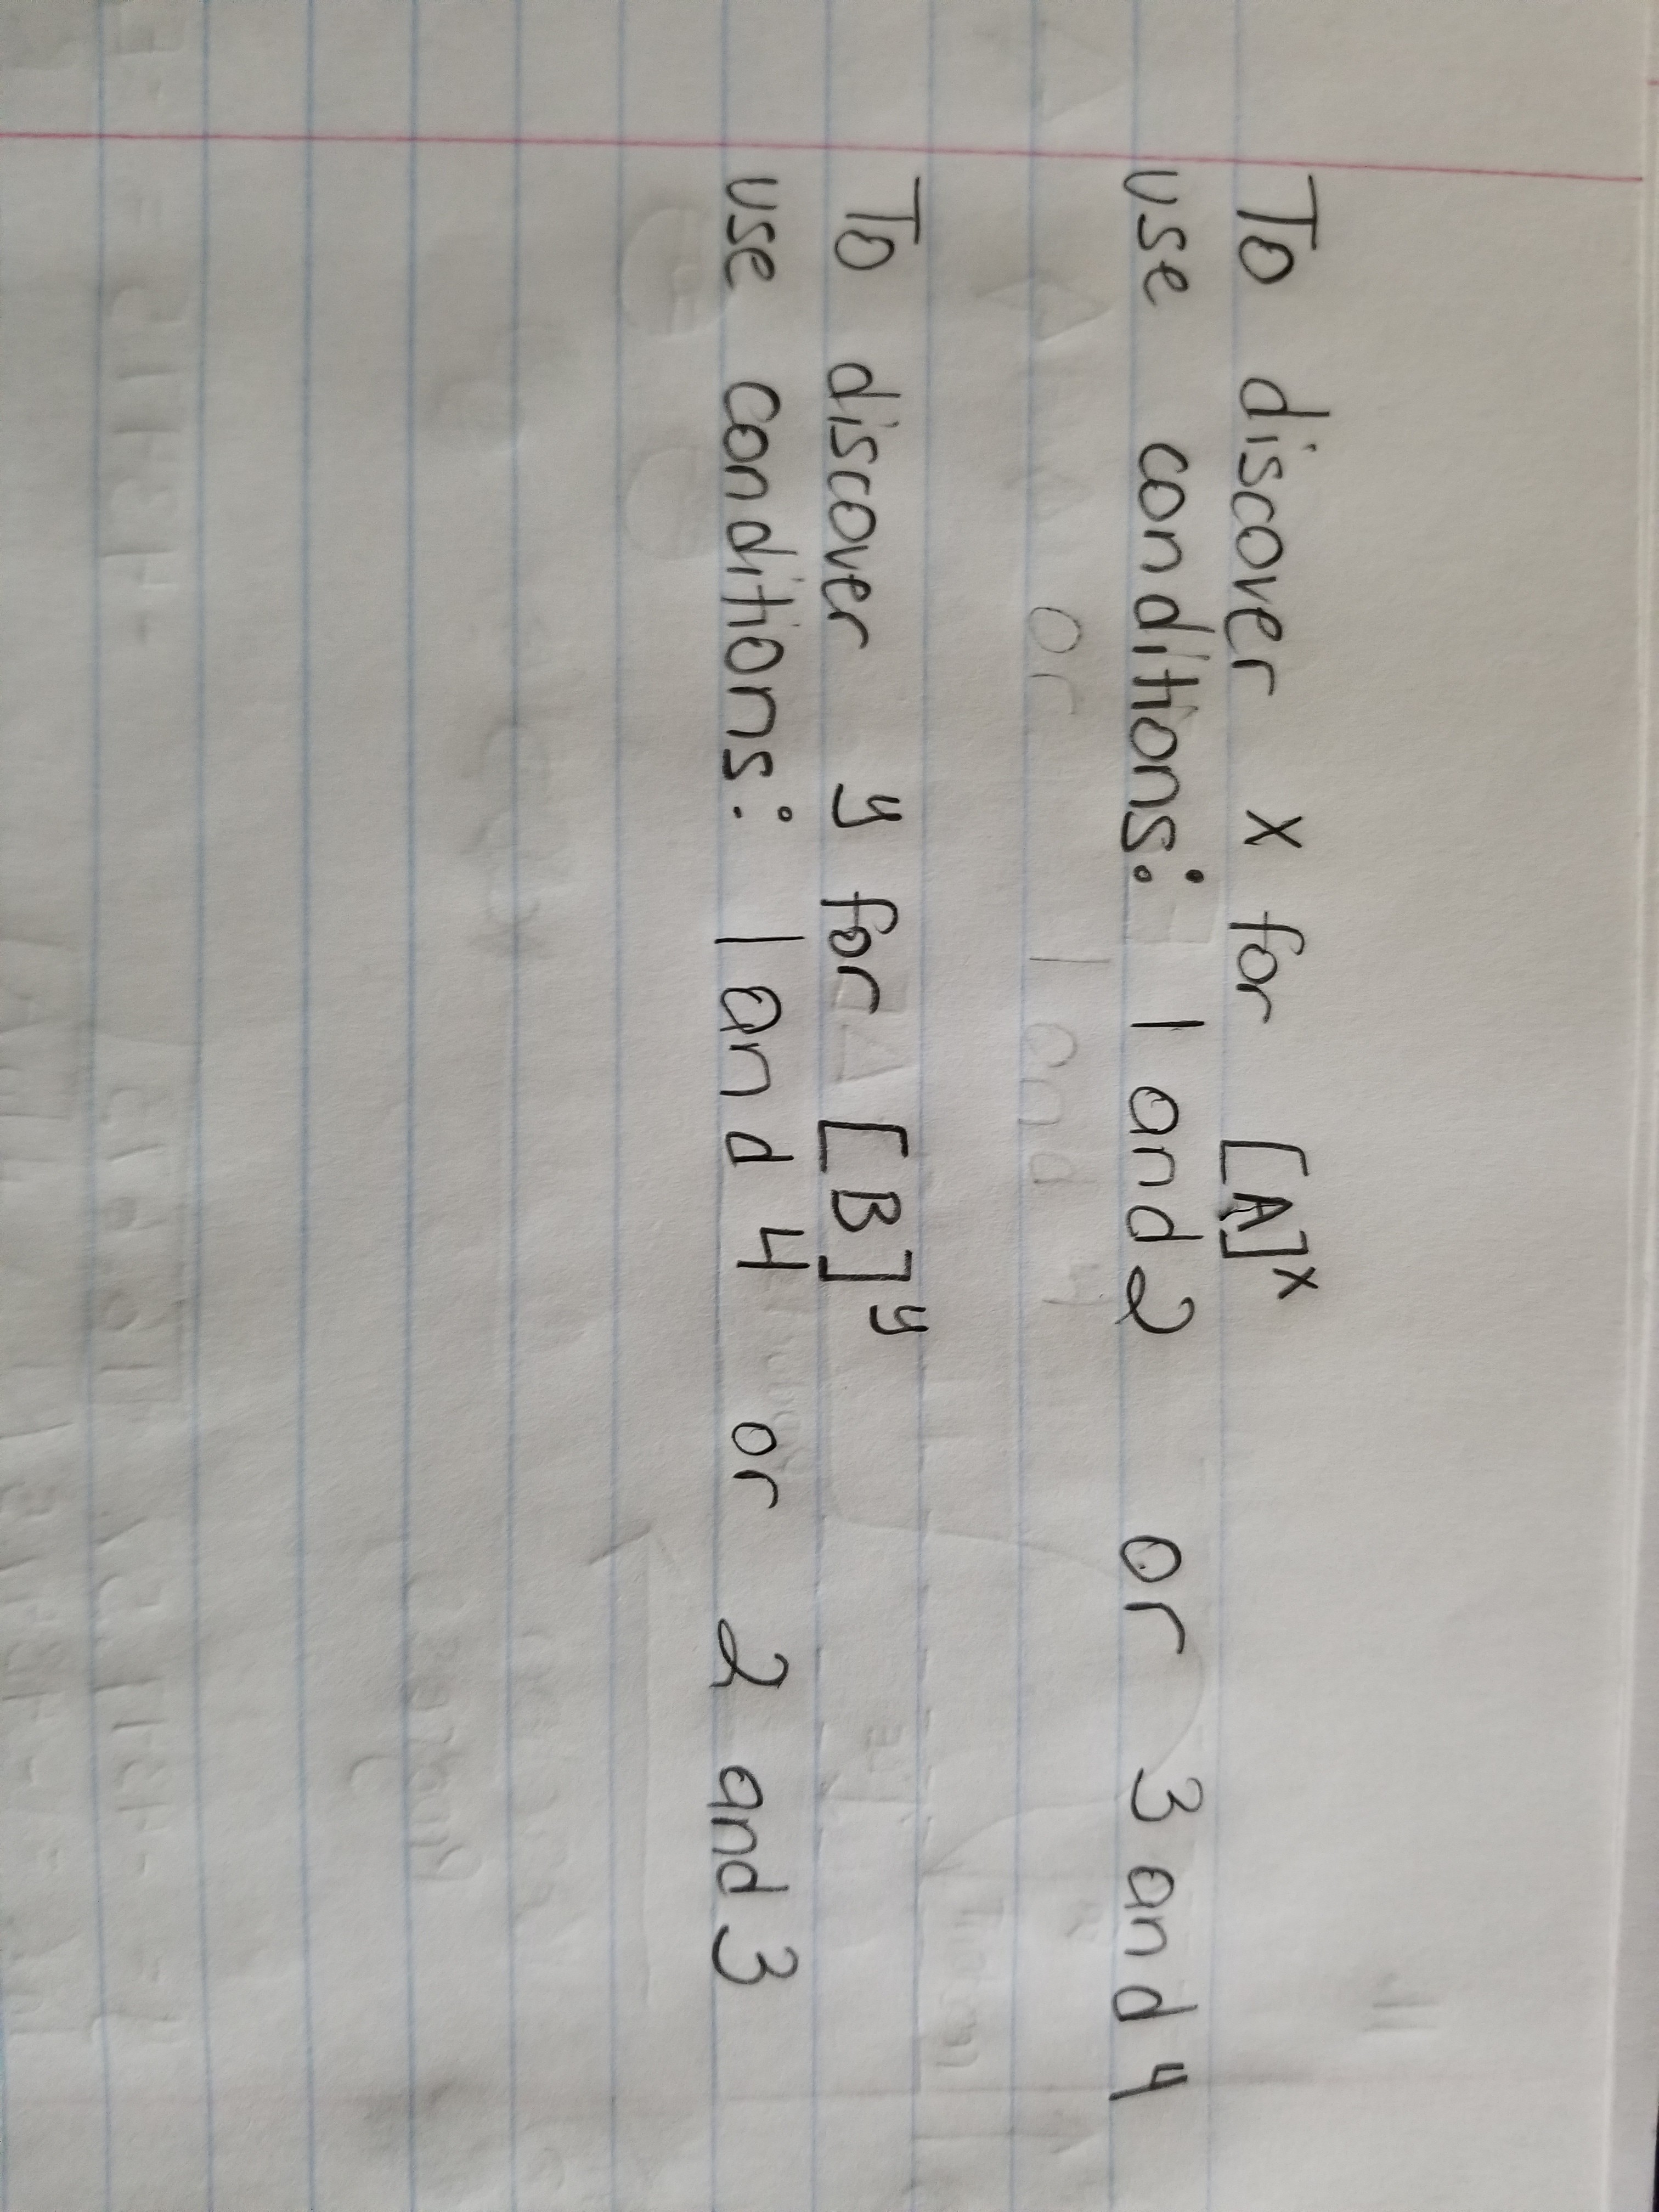 To discover x for [A]ˣ
use conditions: 1 and 2 or 3 and 4
or 1 and 4
To discover y for [B]ʸ
use conditions: 1 and 4 or 2 and 3